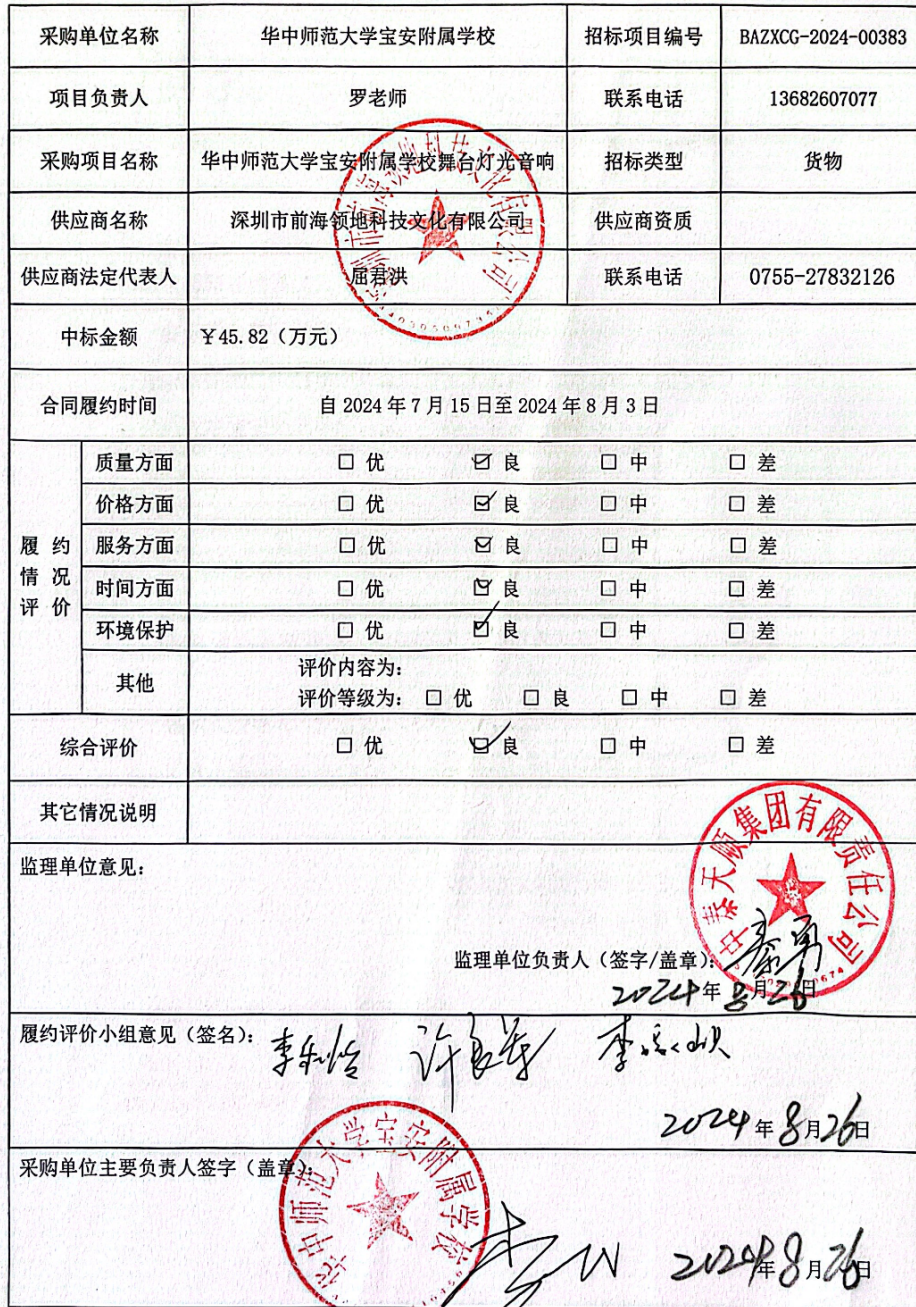 采购单位名称 华中师范大学宝安附属学校 招标项目编号 BAZXCG-2024-00383
项目负责人 罗老师 联系电话 13682607077
采购项目名称 华中师范大学宝安附属学校舞台灯光音响 招标类型 货物
供应商名称 深圳市前海领地科技文化有限公司 供应商资质
供应商法定代表人 屈君洪 联系电话 0755-27832126
中标金额 ¥45.82（万元）
合同履约时间 自 2024 年 7 月 15 日至 2024 年 8 月 3 日
履约情况评价
质量方面 □ 优 ☑ 良 □ 中 □ 差
价格方面 □ 优 ☑ 良 □ 中 □ 差
服务方面 □ 优 ☑ 良 □ 中 □ 差
时间方面 □ 优 ☑ 良 □ 中 □ 差
环境保护 □ 优 ☑ 良 □ 中 □ 差
其他 评价内容为：
评价等级为： □ 优 □ 良 □ 中 □ 差
综合评价 □ 优 ☑ 良 □ 中 □ 差
其它情况说明
中泰天顺集团有限责任公司
监理单位意见：
监理单位负责人（签字/盖章）：
2024年8月26日
履约评价小组意见（签名）：
2024年8月26日
华中师范大学宝安附属学校
采购单位主要负责人签字（盖章）：
2024年8月26日